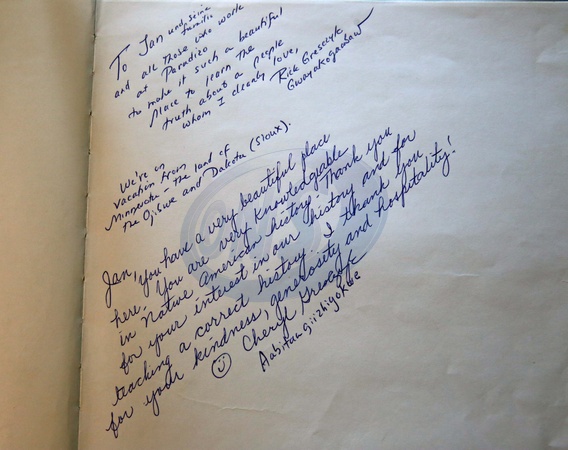 To Jan und seine
Familie
and all those who work
at Paradizo
to make it such a beautiful
place to learn the
truth about a people
whom I dearly love,
Rick Gresczyk
Gwayakogaabaw
We're on
vacation from
Minnesota - the land of
the Ojibwe and Dakota (Sioux).
Jan, you have a very beautiful place
here. You are very knowledgable
in Native American history. Thank you
for your interest in our history and for
teaching a correct history. I thank you
for your kindness, generosity and hospitality!
☺ Cheryl Gresczyk